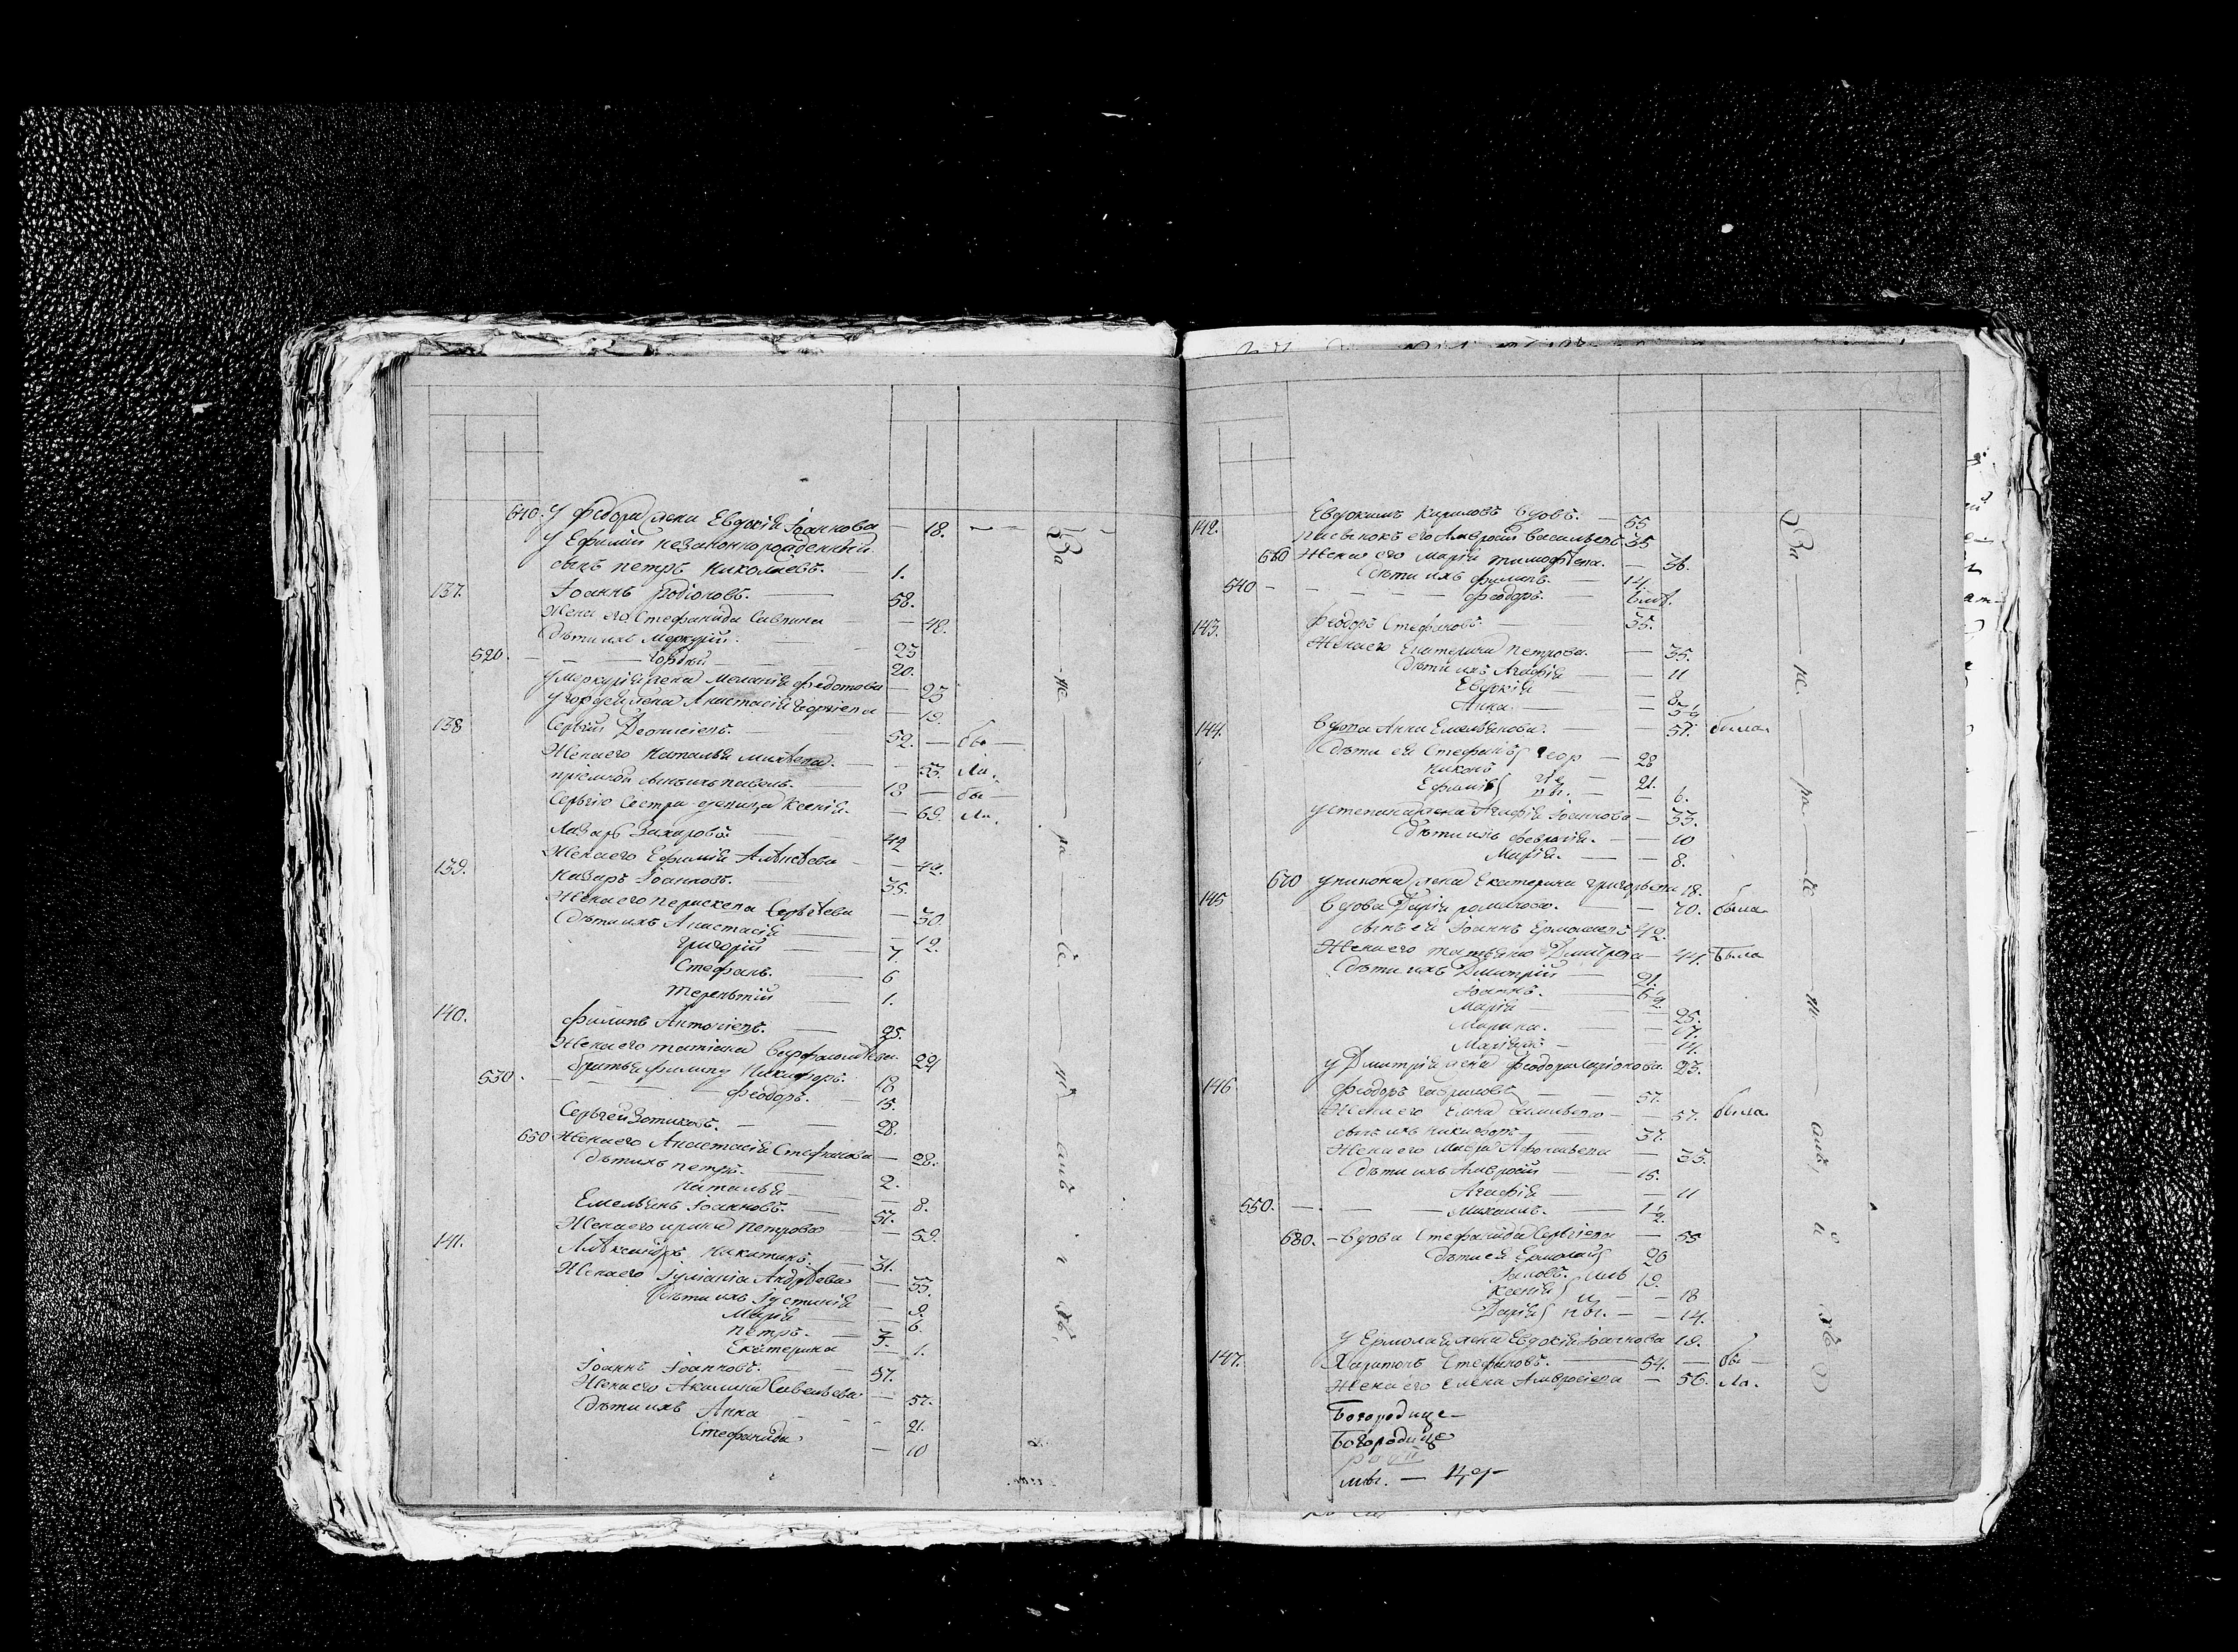 640. У Феодора жена Евдокія Іоаннова — 18. — —
У Ефиміи незаконнорожденный
сынъ Петръ Николаевъ. — 1.
137. Іоаннъ Родіоновъ. — 58.
Жена его Стефанида Савина — 48.
Дѣти ихъ Меркурій. — 23
520. — — — Гордѣй — 20.
У Меркурія жена Меланія Федотова — 25
У Гордея жена Анастасія Георгіева — 19.
138 Сергѣй Деонисіевъ. — 52. — бы —
Жена его Наталья Михѣева. — — 53. ла.
пріемной сынъ ихъ Павелъ. — 18 — бы —
Сергѣю сестра девица Ксенія. — 69. ла.
Лазарь Захаровъ — 42
Жена его Ефимія Алѣксѣева — — 42.
139. Назаръ Іоанновъ. — 35.
Жена его Параскева Сергѣева — 30.
Дѣти ихъ Анастасія — — 12.
Григорій — 7.
Стефанъ. — 6
Терентій — 1.
140. Филипъ Антоніевъ. — 25.
Жена его Татіана Варфоломѣева. 24
братья Филипу Никифоръ. 18
530. — — — — Феодоръ. — 15.
Сергѣй Зотиковъ. — — 28.
650 Жена его Анастасія Стефанова — 28.
Дѣти ихъ Петръ. 2.
Наталья — — 8.
Емельянъ Іоанновъ. — 57.
Жена его Ирина Петрова — 59.
141. Алѣксандръ Никитинъ. — 31.
Жена его Іуліанія Андрѣева — 33.
Дѣти ихъ Іустинія — 9.
Марія — 6.
Петръ. — 3.
Екатерина — 1.
Іоаннъ Іоанновъ. — 57.
Жена его Акилина Савельева — 57.
Дѣти ихъ Анна — — 21.
Стефанида — 10
За
не
ра
142. Евдокимъ Кириловъ вдовъ. — 55
пасынокъ его Амвросій Васильевъ 35
660 Жена его Марія Тимофѣева. — 36.
Дѣти ихъ Филипъ. — 14.
540 — — — — — Феодоръ. —
143. Феодоръ Стефановъ. — 35.
Жена его Екатерина Петрова. — 35.
Дѣти ихъ Агафія — — 11
Евдокія — 8.
Анна. — — 3½
144. Вдова Анна Емельянова. — — 57. была.
Дѣти ея Стефанъ — 28
Никонъ — 21.
Ефимія — 6.
У Степана жена Агафія Іоаннова — 33.
Дѣти ихъ Февронія. — — 10
Марія. — — 8.
670 У Никона жена Екатерина Григорьева 18.
145 Вдова Дарія Романова. — — 70. была
сынъ ея Іоаннъ Ермолаевъ 42.
Жена его Татьяна Дмитріева — 44. была
Дѣти ихъ Дмитрій — 21.
Іоаннъ. — 6½
Марія — — 25.
Марина. — — 17.
— 14.
У Дмитрія жена Феодора Ларіонова. 23.
146 Феодоръ Гавриловъ — 57.
Жена его Елена Васильева — — 57. была
сынъ ихъ Никифоръ — 37.
Жена его Мавра Афонасьева — 35.
Дѣти ихъ Амвросій — 15.
Агафія — — 11
550. — . — — Михаилъ. — 1½
680. — Вдова Стефанида Сергіева — 55
Дѣти ея Ермолай 26
Іаковъ. 19.
Ксенія — 18
Дарія — 14.
У Ермолая жена Евдокія Іоаннова 19.
147. Харитонъ Стефановъ. — 54. — бы —
Жена его Елена Амвросіева — 56. ла.
За
не
ра
Богородице
Богородице
мы. —